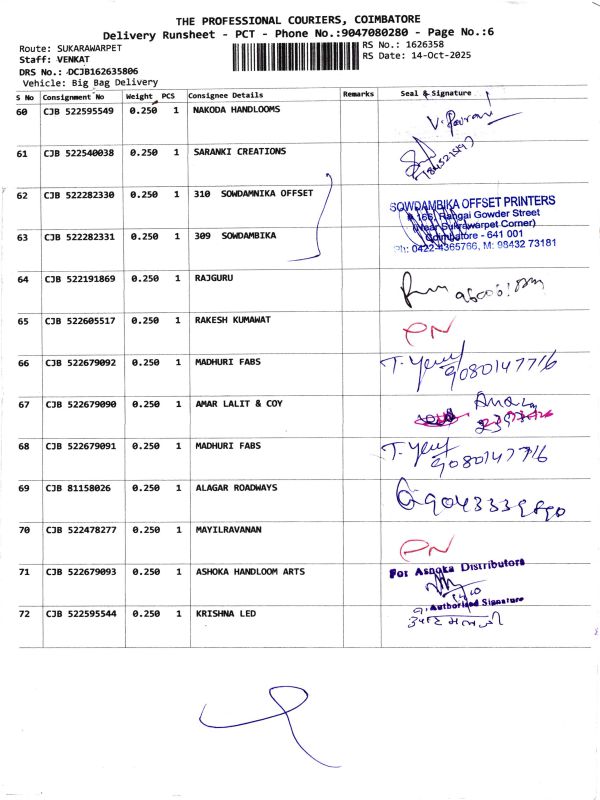 THE PROFESSIONAL COURIERS, COIMBATORE
Delivery Runsheet - PCT - Phone No.:9047080280 - Page No.:6
Route: SUKARAWARPET
Staff: VENKAT
DRS No.: DCJB162635806
Vehicle: Big Bag Delivery
RS No.: 1626358
RS Date: 14-Oct-2025
S No Consignment No Weight PCS Consignee Details Remarks Seal & Signature
60 CJB 522595549 0.250 1 NAKODA HANDLOOMS
61 CJB 522540038 0.250 1 SARANKI CREATIONS
62 CJB 522282330 0.250 1 310 SOWDAMNIKA OFFSET
SOWDAMBIKA OFFSET PRINTERS
166, Rangai Gowder Street
(Near Sukrawarpet Corner)
Coimbatore - 641 001
Ph: 0422-4365766, M: 98432 73181
63 CJB 522282331 0.250 1 309 SOWDAMBIKA
64 CJB 522191869 0.250 1 RAJGURU
65 CJB 522605517 0.250 1 RAKESH KUMAWAT PN
66 CJB 522679092 0.250 1 MADHURI FABS 9080147716
67 CJB 522679090 0.250 1 AMAR LALIT & COY
68 CJB 522679091 0.250 1 MADHURI FABS 9080147716
69 CJB 81158026 0.250 1 ALAGAR ROADWAYS
70 CJB 522478277 0.250 1 MAYILRAVANAN PN
71 CJB 522679093 0.250 1 ASHOKA HANDLOOM ARTS
For Ashoka Distributors
Authorised Signature
72 CJB 522595544 0.250 1 KRISHNA LED